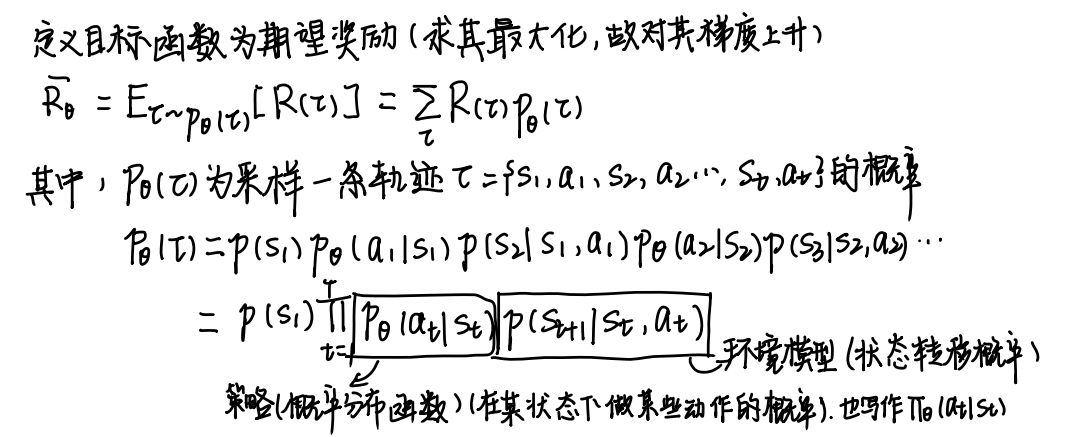 定义目标函数为期望奖励(求其最大化,故对其梯度上升)
R̄_θ = E_{τ~p_θ(τ)}[R(τ)] = Σ_τ R(τ)p_θ(τ)
其中,p_θ(τ)为采样一条轨迹 τ={s₁,a₁,s₂,a₂…,s_t,a_t}的概率
p_θ(τ)=p(s₁)p_θ(a₁|s₁)p(s₂|s₁,a₁)p_θ(a₂|s₂)p(s₃|s₂,a₂)…
= p(s₁)∏_{t=1}^{T} p_θ(a_t|s_t) p(s_{t+1}|s_t,a_t)
环境模型(状态转移概率)
策略(概率分布函数)(在某状态下做某些动作的概率).也写作π_θ(a_t|s_t)